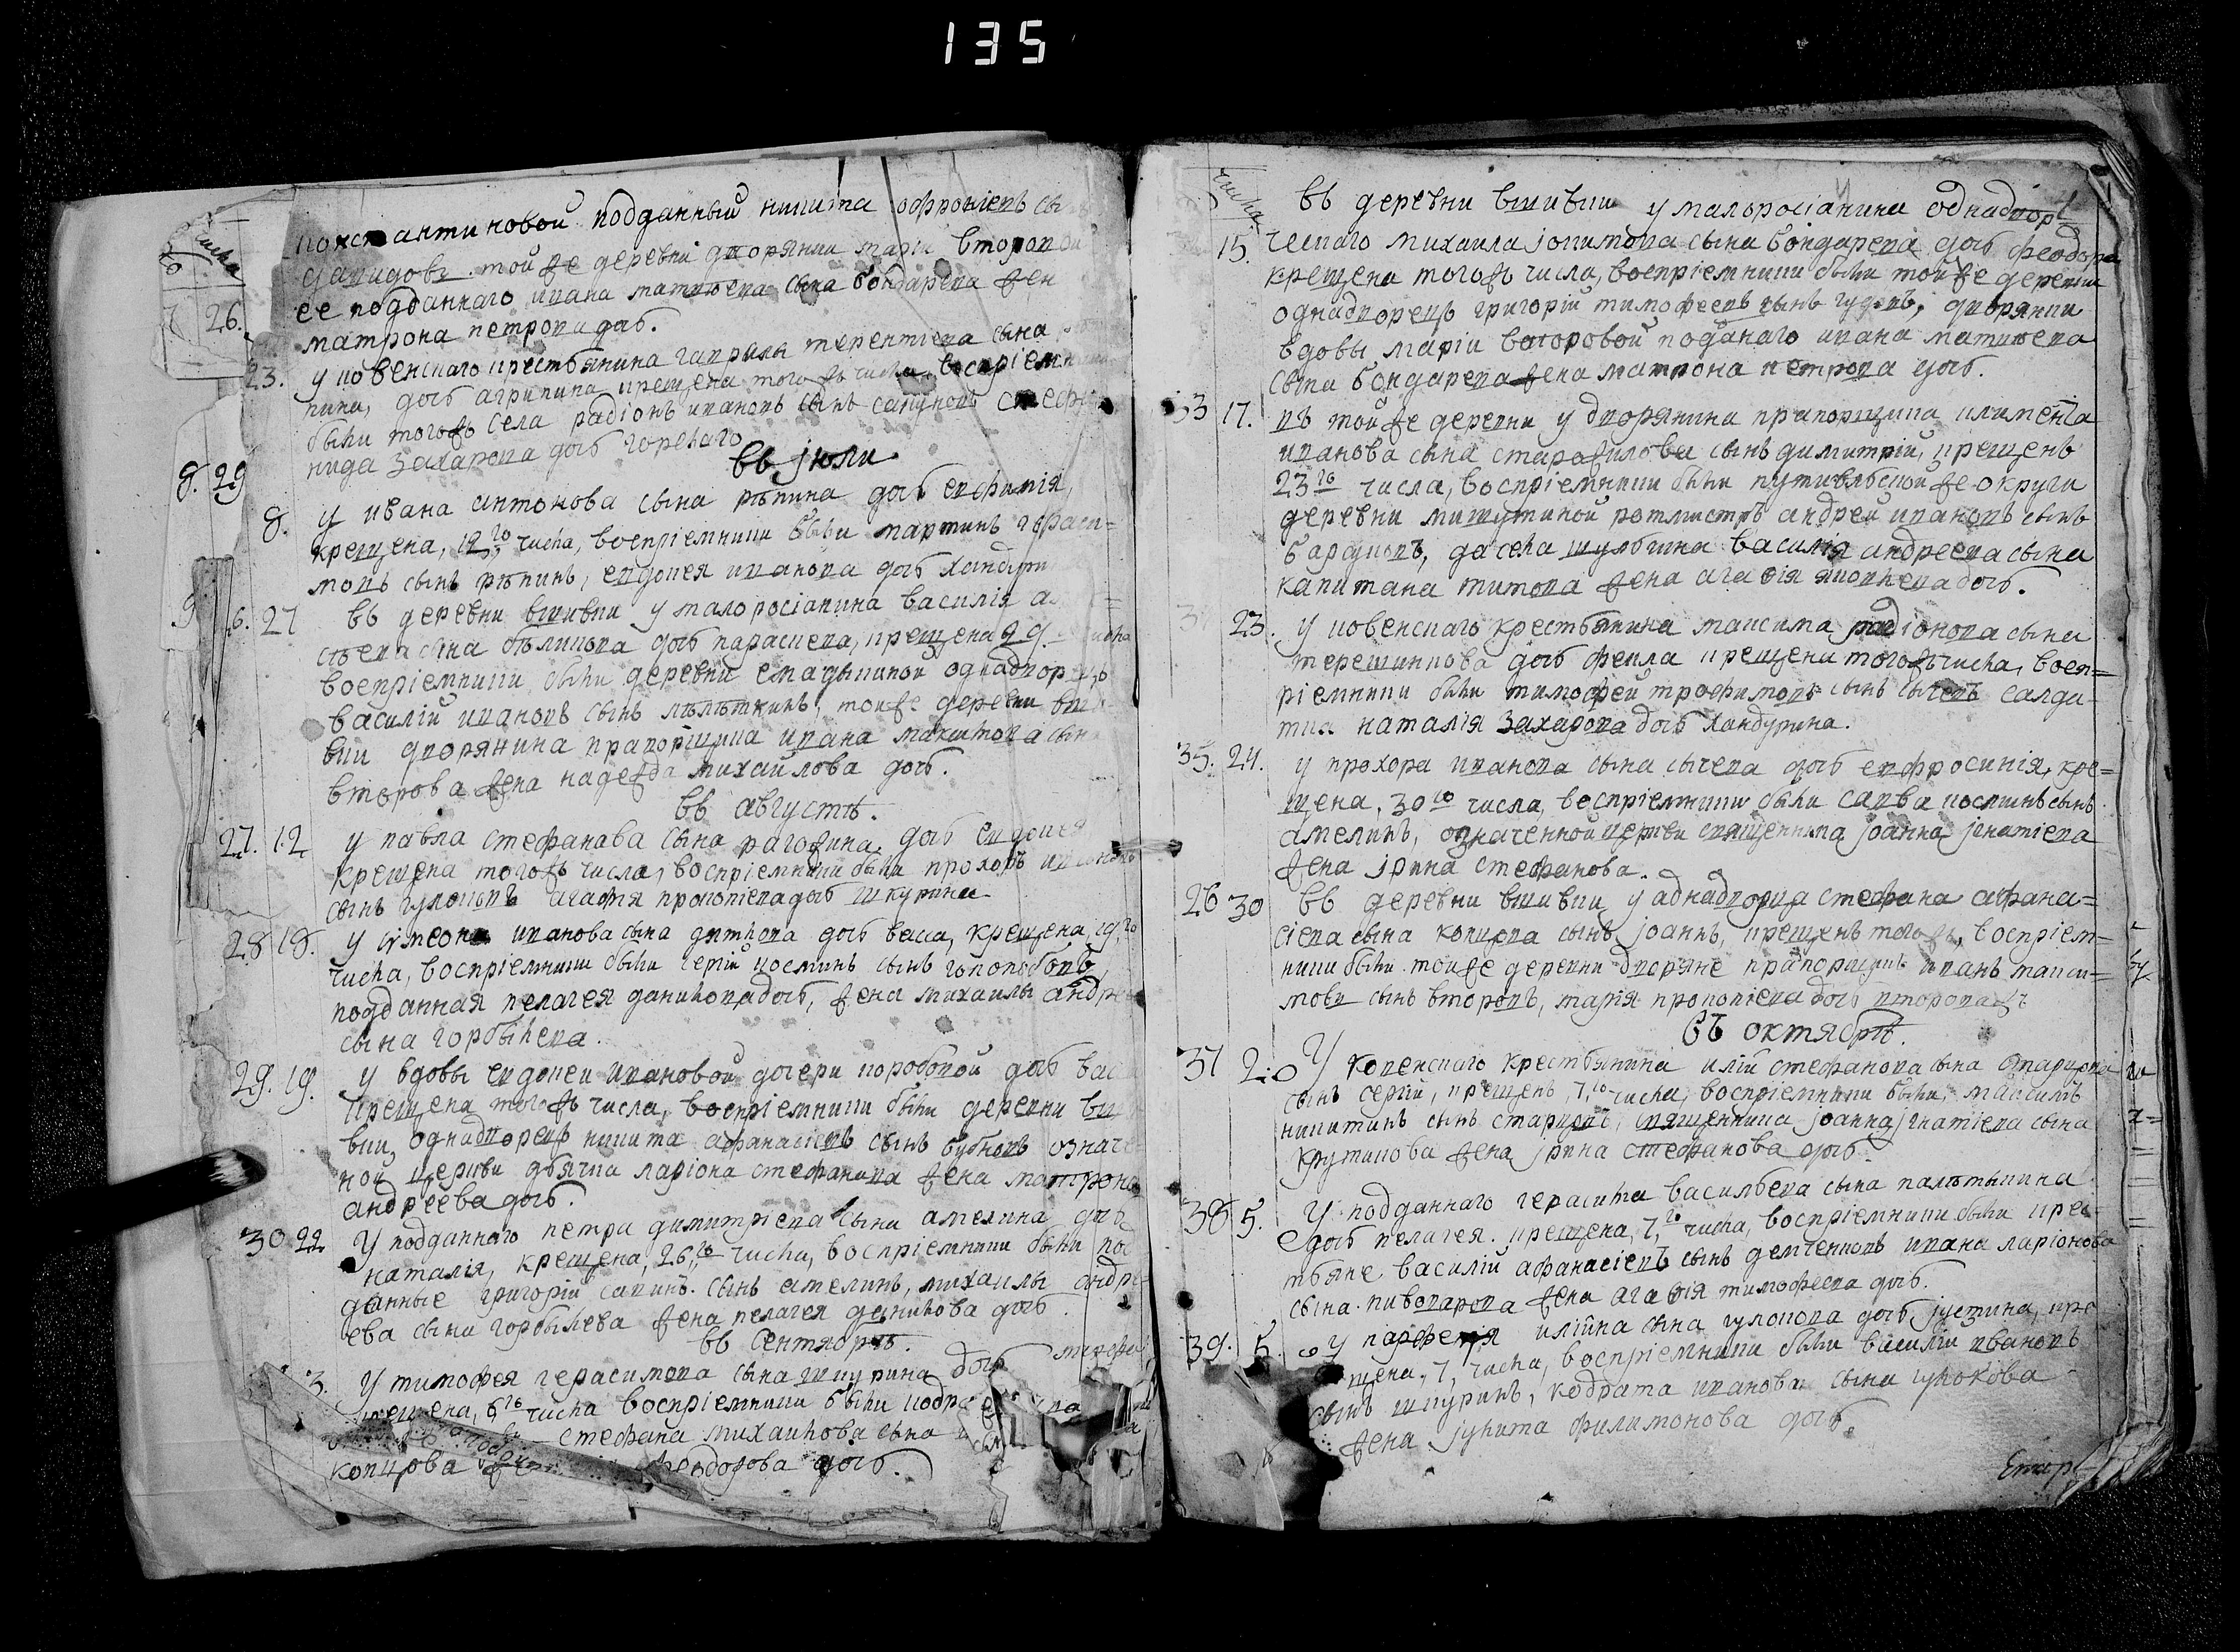 135
числа
константиновой подданный никита софрониевъ сы
давидовъ. той же деревни дворянки марiи второвой
26.
ее подданнаго ивана матвѣева сына бондарева жен
матрона петрова дочь.
23. у ковенскаго крестьянина гаврилы терентиева сына
кина, дочь агрипина крещена того жъ числа, воспрiемники
были тогожъ села радiонъ ивановъ сынъ
нида захарова дочь горекаго
въ јюли
8. 29
8. у ивана антонова сына рѣпина дочь евфимiя,
крещена, 12го, числа, воспрiемники были мартинъ гераси=
мовъ сынъ рѣпинъ, евдокея иванова дочь хандурин
27 въ деревни вшивки у малоросiанина василiя
сѣева сына бѣликова дочь параскева, крещена числа
воспрiемники были деревни однадворецъ
василiй ивановъ сынъ той же деревни вши
вки дворянина прапорщика ивана максимова сына
второва жена надежда михайлова дочь.
въ августѣ.
27. 12 у павла стефанава сына рагозина, дочь евдокея
крещена тогожъ числа, воспрiемники были прохоръ ивановъ
сынъ гулоковъ агафiя прокопiева дочь шкурина
28 18. у сiмеона иванова сына дятлова дочь васса, крещена, 19,го
числа, воспрiемники были сергiй косминъ сынъ голопобовъ
подданная пелагея данилова дочь, жена михаилы андре
сына горбылева.
29. 19. у вдовы евдокеи ивановой дочери коробовой дочь вас
крещена тогожъ числа, воспрiемники были деревни вши
вки, однадворецъ никита афанасiевъ сынъ бубновъ означе
ной церкви дьячка ларiона стефанова жена матрона
андреева дочь.
30 22 У подданнаго петра димитрiева сына амелина дочь
наталiя, крещена, 26,го числа, воспрiемники были под
данные григорiй савинъ сынъ амелинъ, михаилы андре=
ева сына горбылева жена пелагея данилова дочь.
въ сентябрѣ.
3. У тимофея герасимова сына шкурина дочь
крещена, 6го числа воспрiемники были кодра
стефана михаилова сына
копцова феодорова дочь.
числа
въ деревни вшивки у малоросiанина однадвор
15. ческаго михаила јокимова сына бондарева дочь феодора
крещена тогожъ числа, воспрiемники были той же деревни
однадворецъ григорiй тимофеевъ сынъ гудовъ, дворянки
вдовы марiи второвой поданаго ивана матвѣева
сына бондарева жена матрона петрова дочь.
33 17. въ той же деревни у дворянина прапорщика климента
иванова сына старожилова сынъ димитрiй, крещенъ
23го числа, воспрiемники были путивльской же округи
деревни мишутиной ротмистръ андрей ивановъ сынъ
бардиовъ, да села шулгина василiя андреева сына
капитана титова жена агафiя яковлева дочь.
23. у ковенскаго крестьянина максима радiонова сына
терешинкова дочь фекла крещена тогожъ числа, восп=
рiемники были тимофей трофимовъ сынъ сычевъ салда-
тка наталiя захарова дочь хандурина.
35. 24. у прохора иванова сына сычева дочь евфросинiя, кре=
щена, 30го числа, воспрiемники были савва космынъ сынъ
амелинъ, означенной церкви священника јоанна јгнатiева
жена јрина стефанова.
26 30 въ деревни вшивки у аднадворца стефана афана=
сiева сына копцова сынъ јоаннъ, крещенъ тогожъ, воспрiем=
ники были той же деревни дворяне прапорщикъ иванъ макси=
мовъ сынъ второвъ, марiя прокопiева дочь второва
въ октябрѣ.
37 2. У ковенскаго крестьянина илiи стефанова сына старцова
сынъ сергiй, крещенъ, 7,го числа, воспрiемники были, максимъ
никитинъ сынъ старцовъ, священника јоанна јгнатiева сына
крутикова жена јрина стефанова дочь.
38 5. У подданнаго герасима васильева сына палѣткина
дочь пелагея. крещена, 7,го числа, воспрiемники были крес-
тьяне василiй афанасiевъ сынъ демченковъ ивана ларiонова
сына пивоварова жена агафiя тимофеева дочь.
39. 5. у парфенiя илiина сына гулокова дочь јустина, кре
щена, 7, числа, воспрiемники были василiй ивановъ
сынъ шкуринъ, кодрата иванова сына гулокова
жена јулита филимонова дочь.